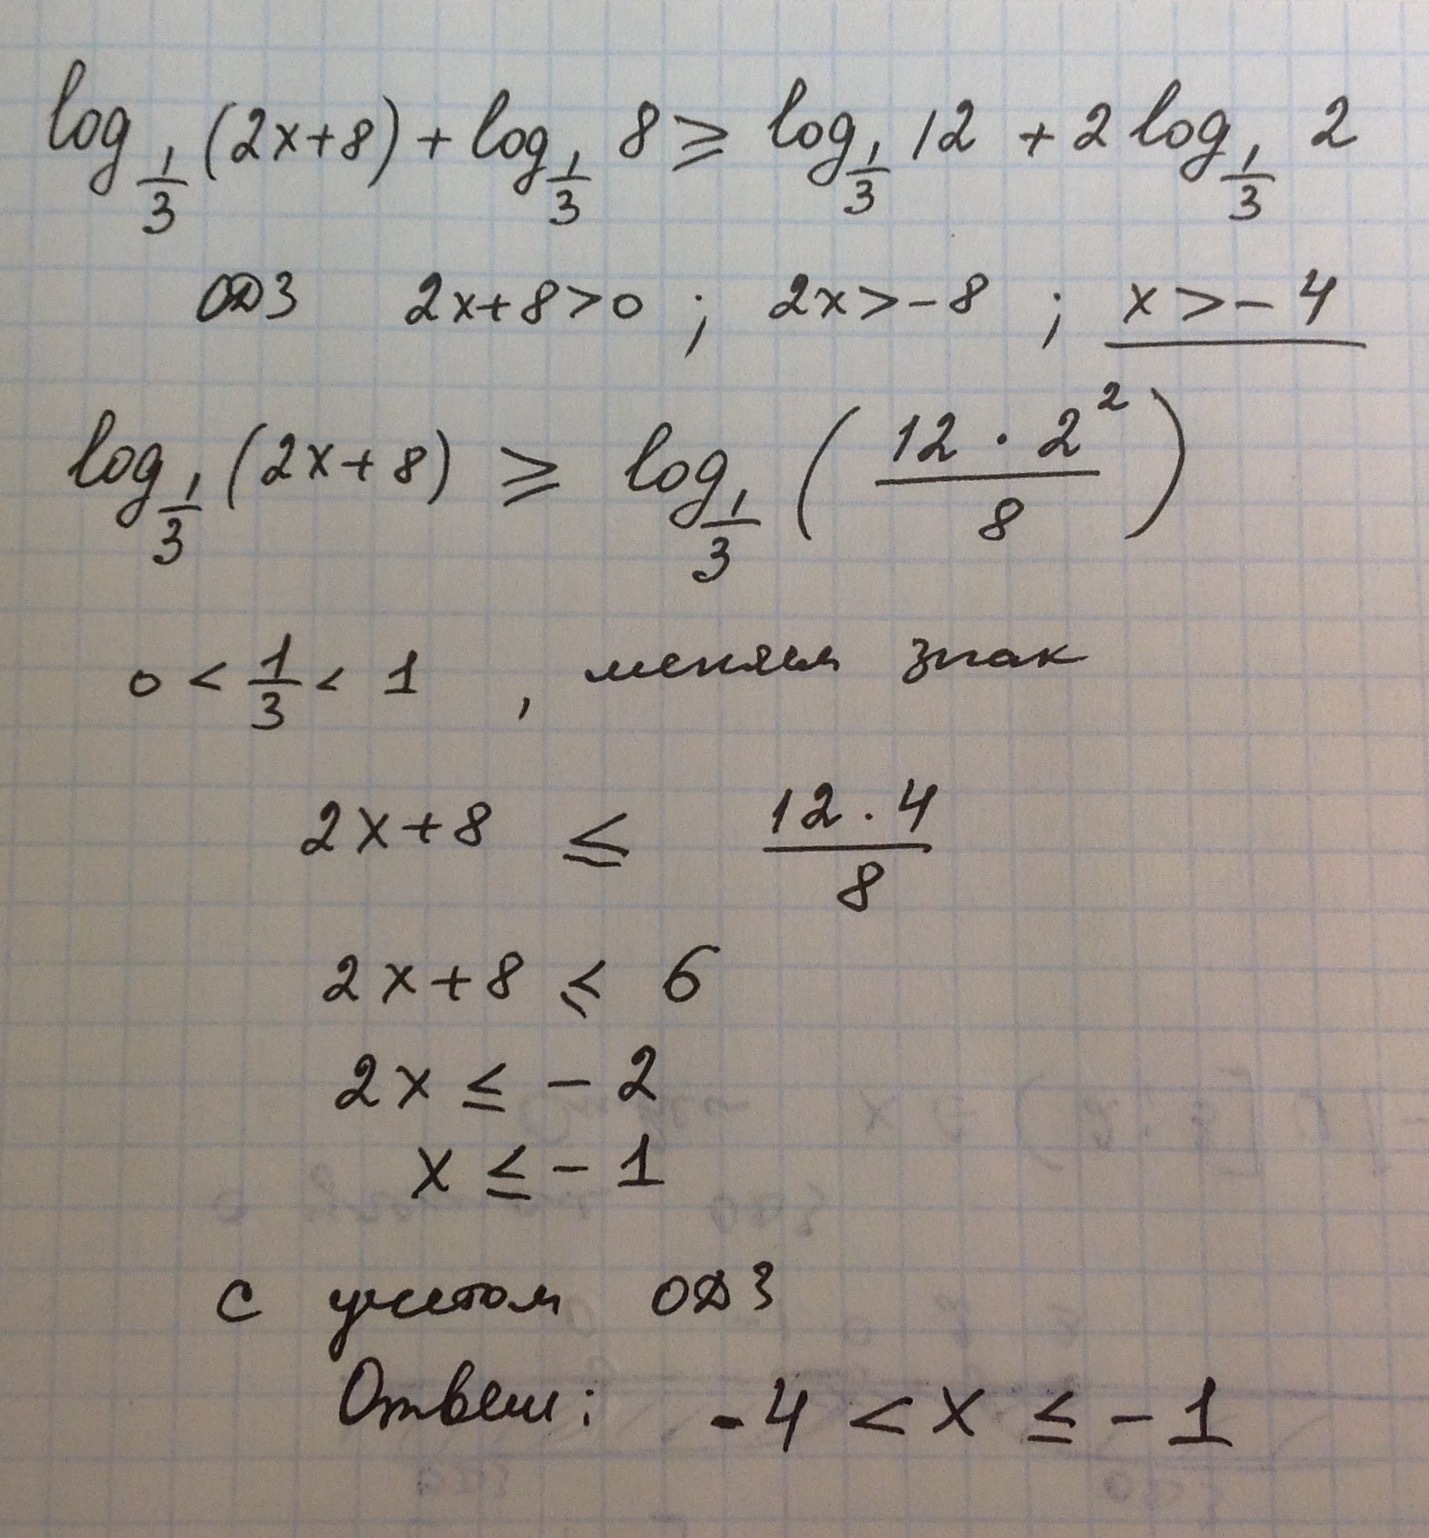 log_{1/3} (2x+8) + log_{1/3} 8 ≥ log_{1/3} 12 + 2 log_{1/3} 2
ОДЗ 2x+8>0 ; 2x>-8 ; x>-4
log_{1/3} (2x+8) ≥ log_{1/3} (12 · 2² / 8)
0 < 1/3 < 1 , меняем знак
2x+8 ≤ 12 . 4 / 8
2x+8 ≤ 6
2x ≤ -2
x ≤ -1
с учетом ОДЗ
Ответ: -4 < x ≤ -1